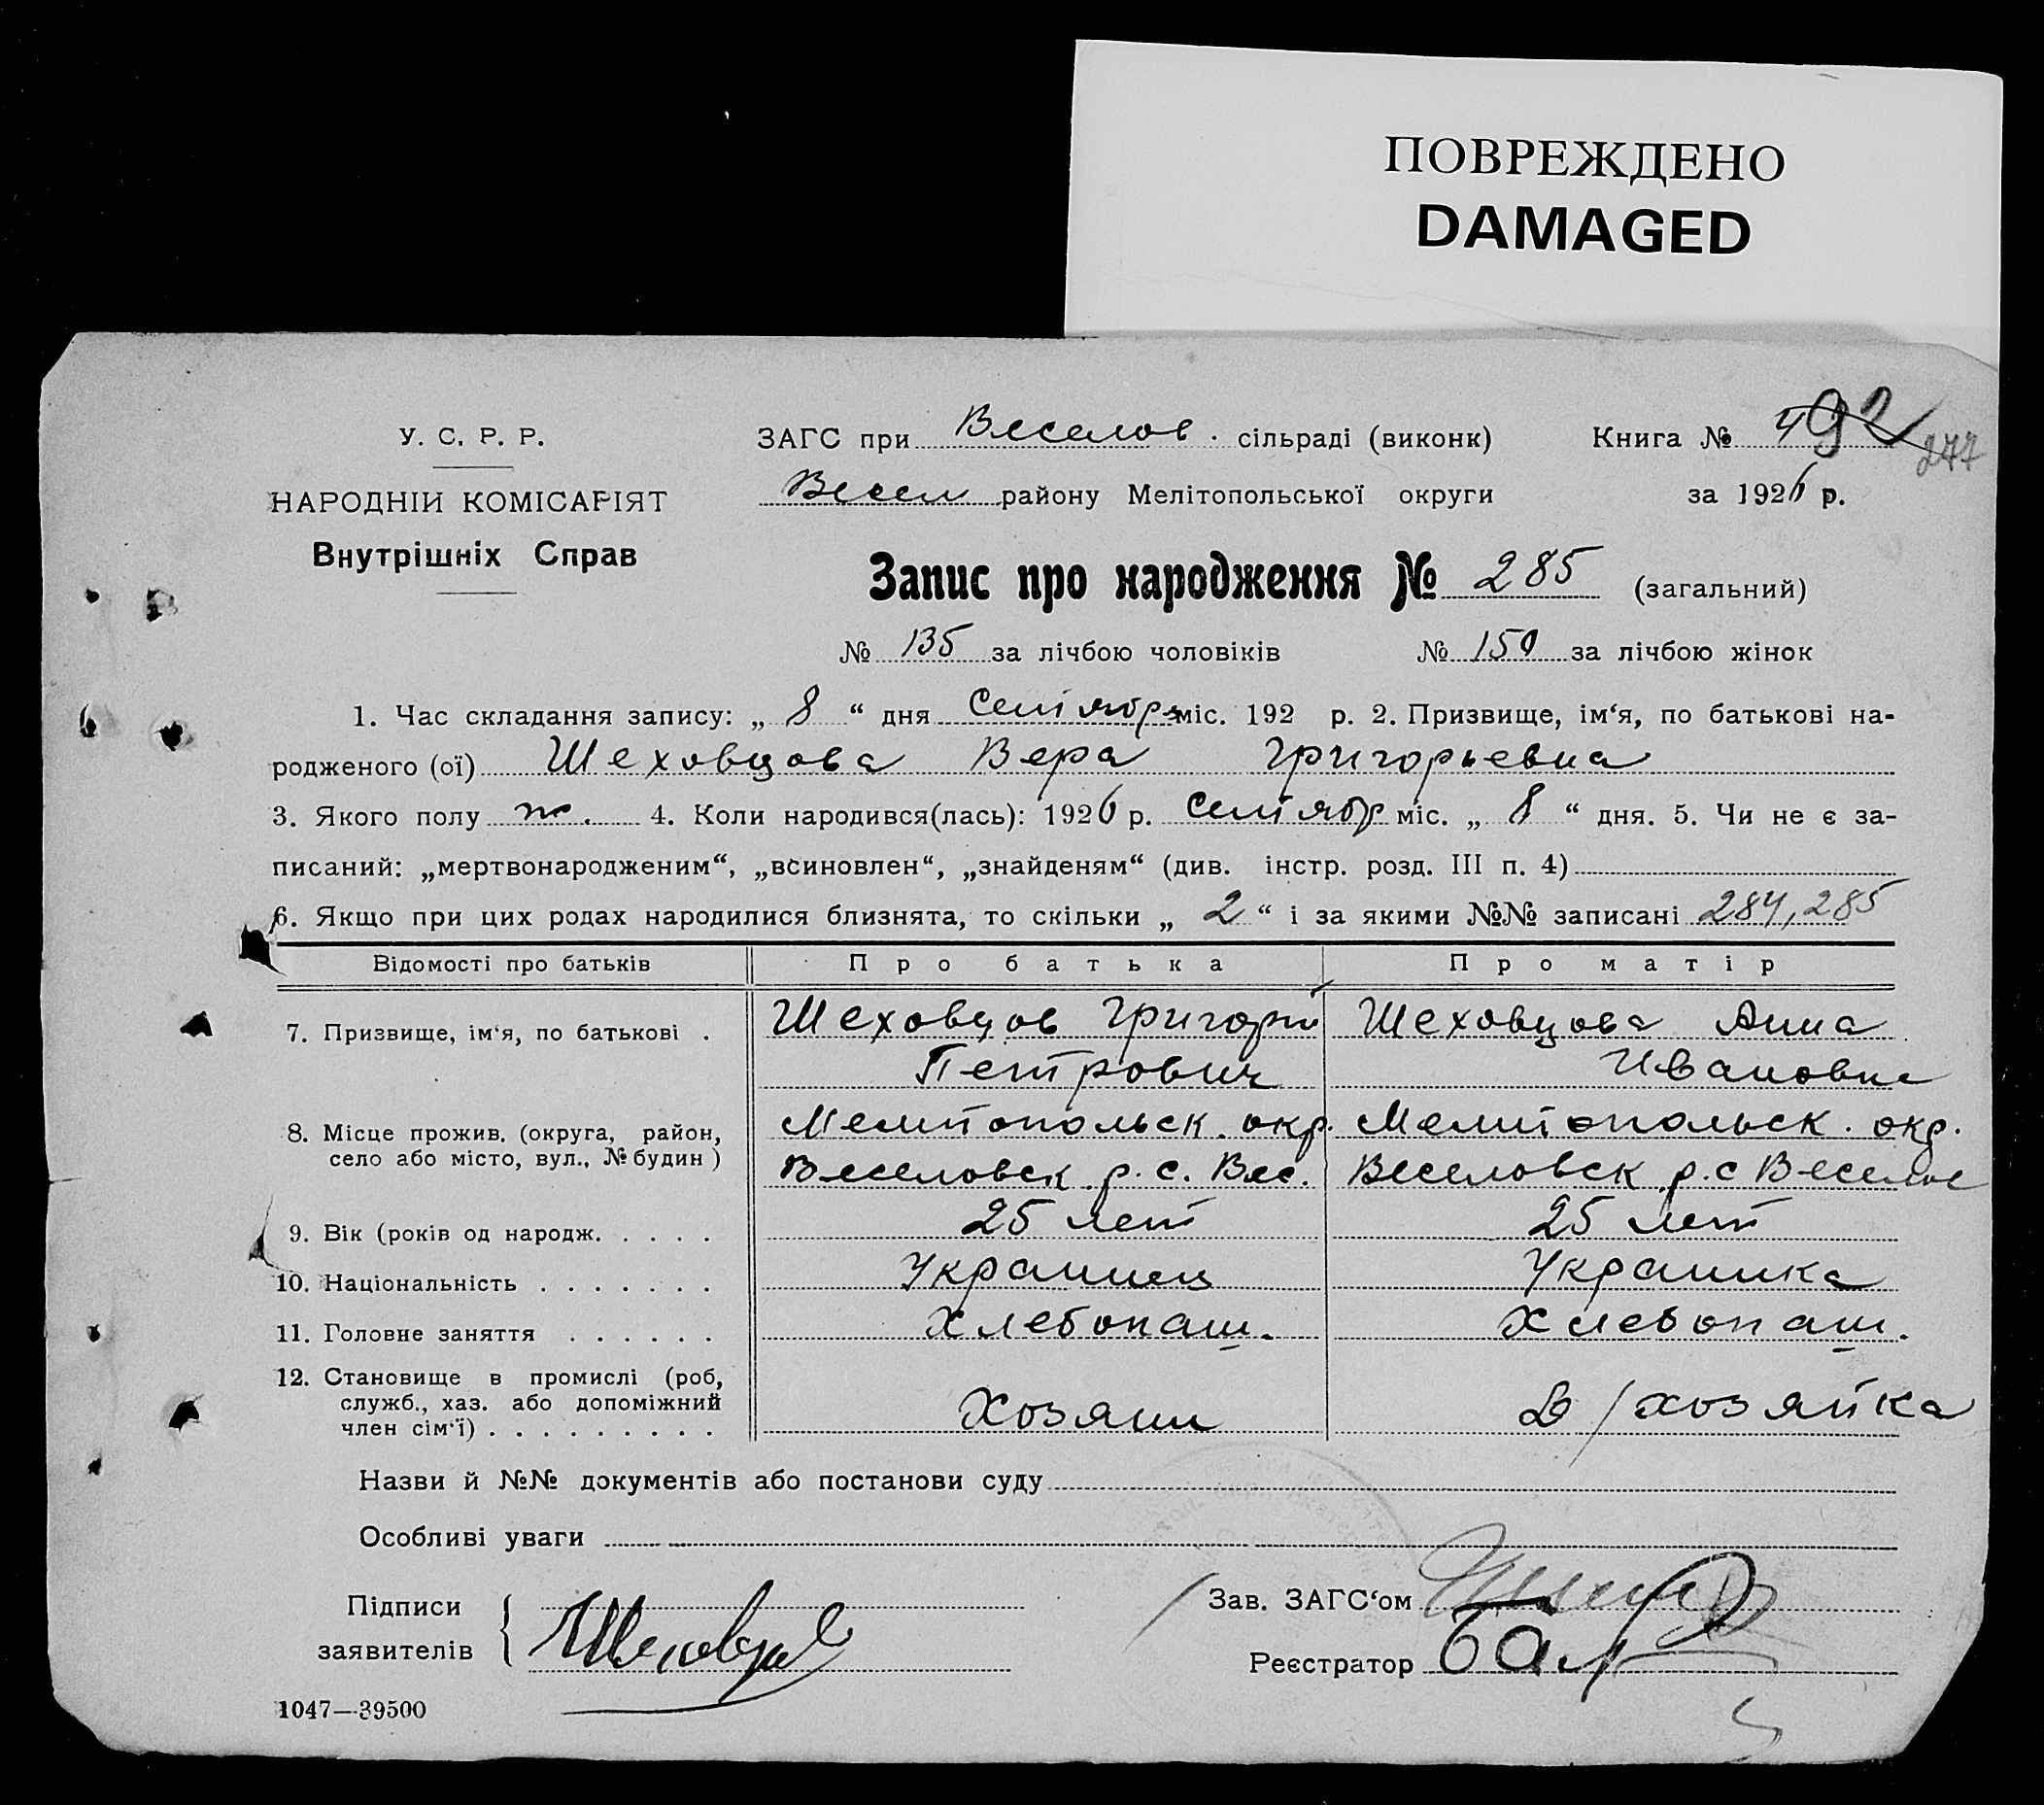 ПОВРЕЖДЕНО
DAMAGED
У. С. Р. Р.
НАРОДНІЙ КОМІСАРІЯТ
Внутрішніх Справ
ЗАГС при Веселов. сільраді (виконк) Книга № 492 277
Весел району Мелітопольської округи за 1926 р.
Запис про народження № 285 (загальний)
№ 135 за лічбою чоловіків № 150 за лічбою жінок
1. Час складання запису: „ 8 “ дня Сентября міс. 192 р. 2. Призвище, ім‘я, по батькові на-
родженого (ої) Шеховцова Вера Григорьевна
3. Якого полу ж. 4. Коли народився(лась): 1926 р. Сентябр міс. „ 8 “ дня. 5. Чи не є за-
писаний: „мертвонародженим“, „всиновлен“, „знайденям“ (див. інстр. розд. III п. 4)
6. Якщо при цих родах народилися близнята, то скільки „ 2 “ і за якими №№ записані 284, 285
Відомості про батьків Про батька Про матір
7. Призвище, ім‘я, по батькові . Шеховцов Григорий Шеховцова Анна
Петрович Ивановна
8. Місце прожив. (округа, район, село або місто, вул., № будин) Мелитопольск. окр. Мелитопольск. окр.
Веселовск р. с. Вес. Веселовск р. с Веселое
9. Вік (років од народж. . . . . 25 лет 25 лет
10. Національність . . . . . . . Украинец Украинка
11. Головне заняття . . . . . . Хлебопаш. Хлебопаш.
12. Становище в промислі (роб, служб., хаз. або допоміжний член сім‘ї) . . . . . . . . . Хозяин Д/хозяйка
Назви й №№ документів або постанови суду
Особливі уваги
Підписи заявителів Шеховцов
Зав. ЗАГС‘ом
Реєстратор
1047—39500